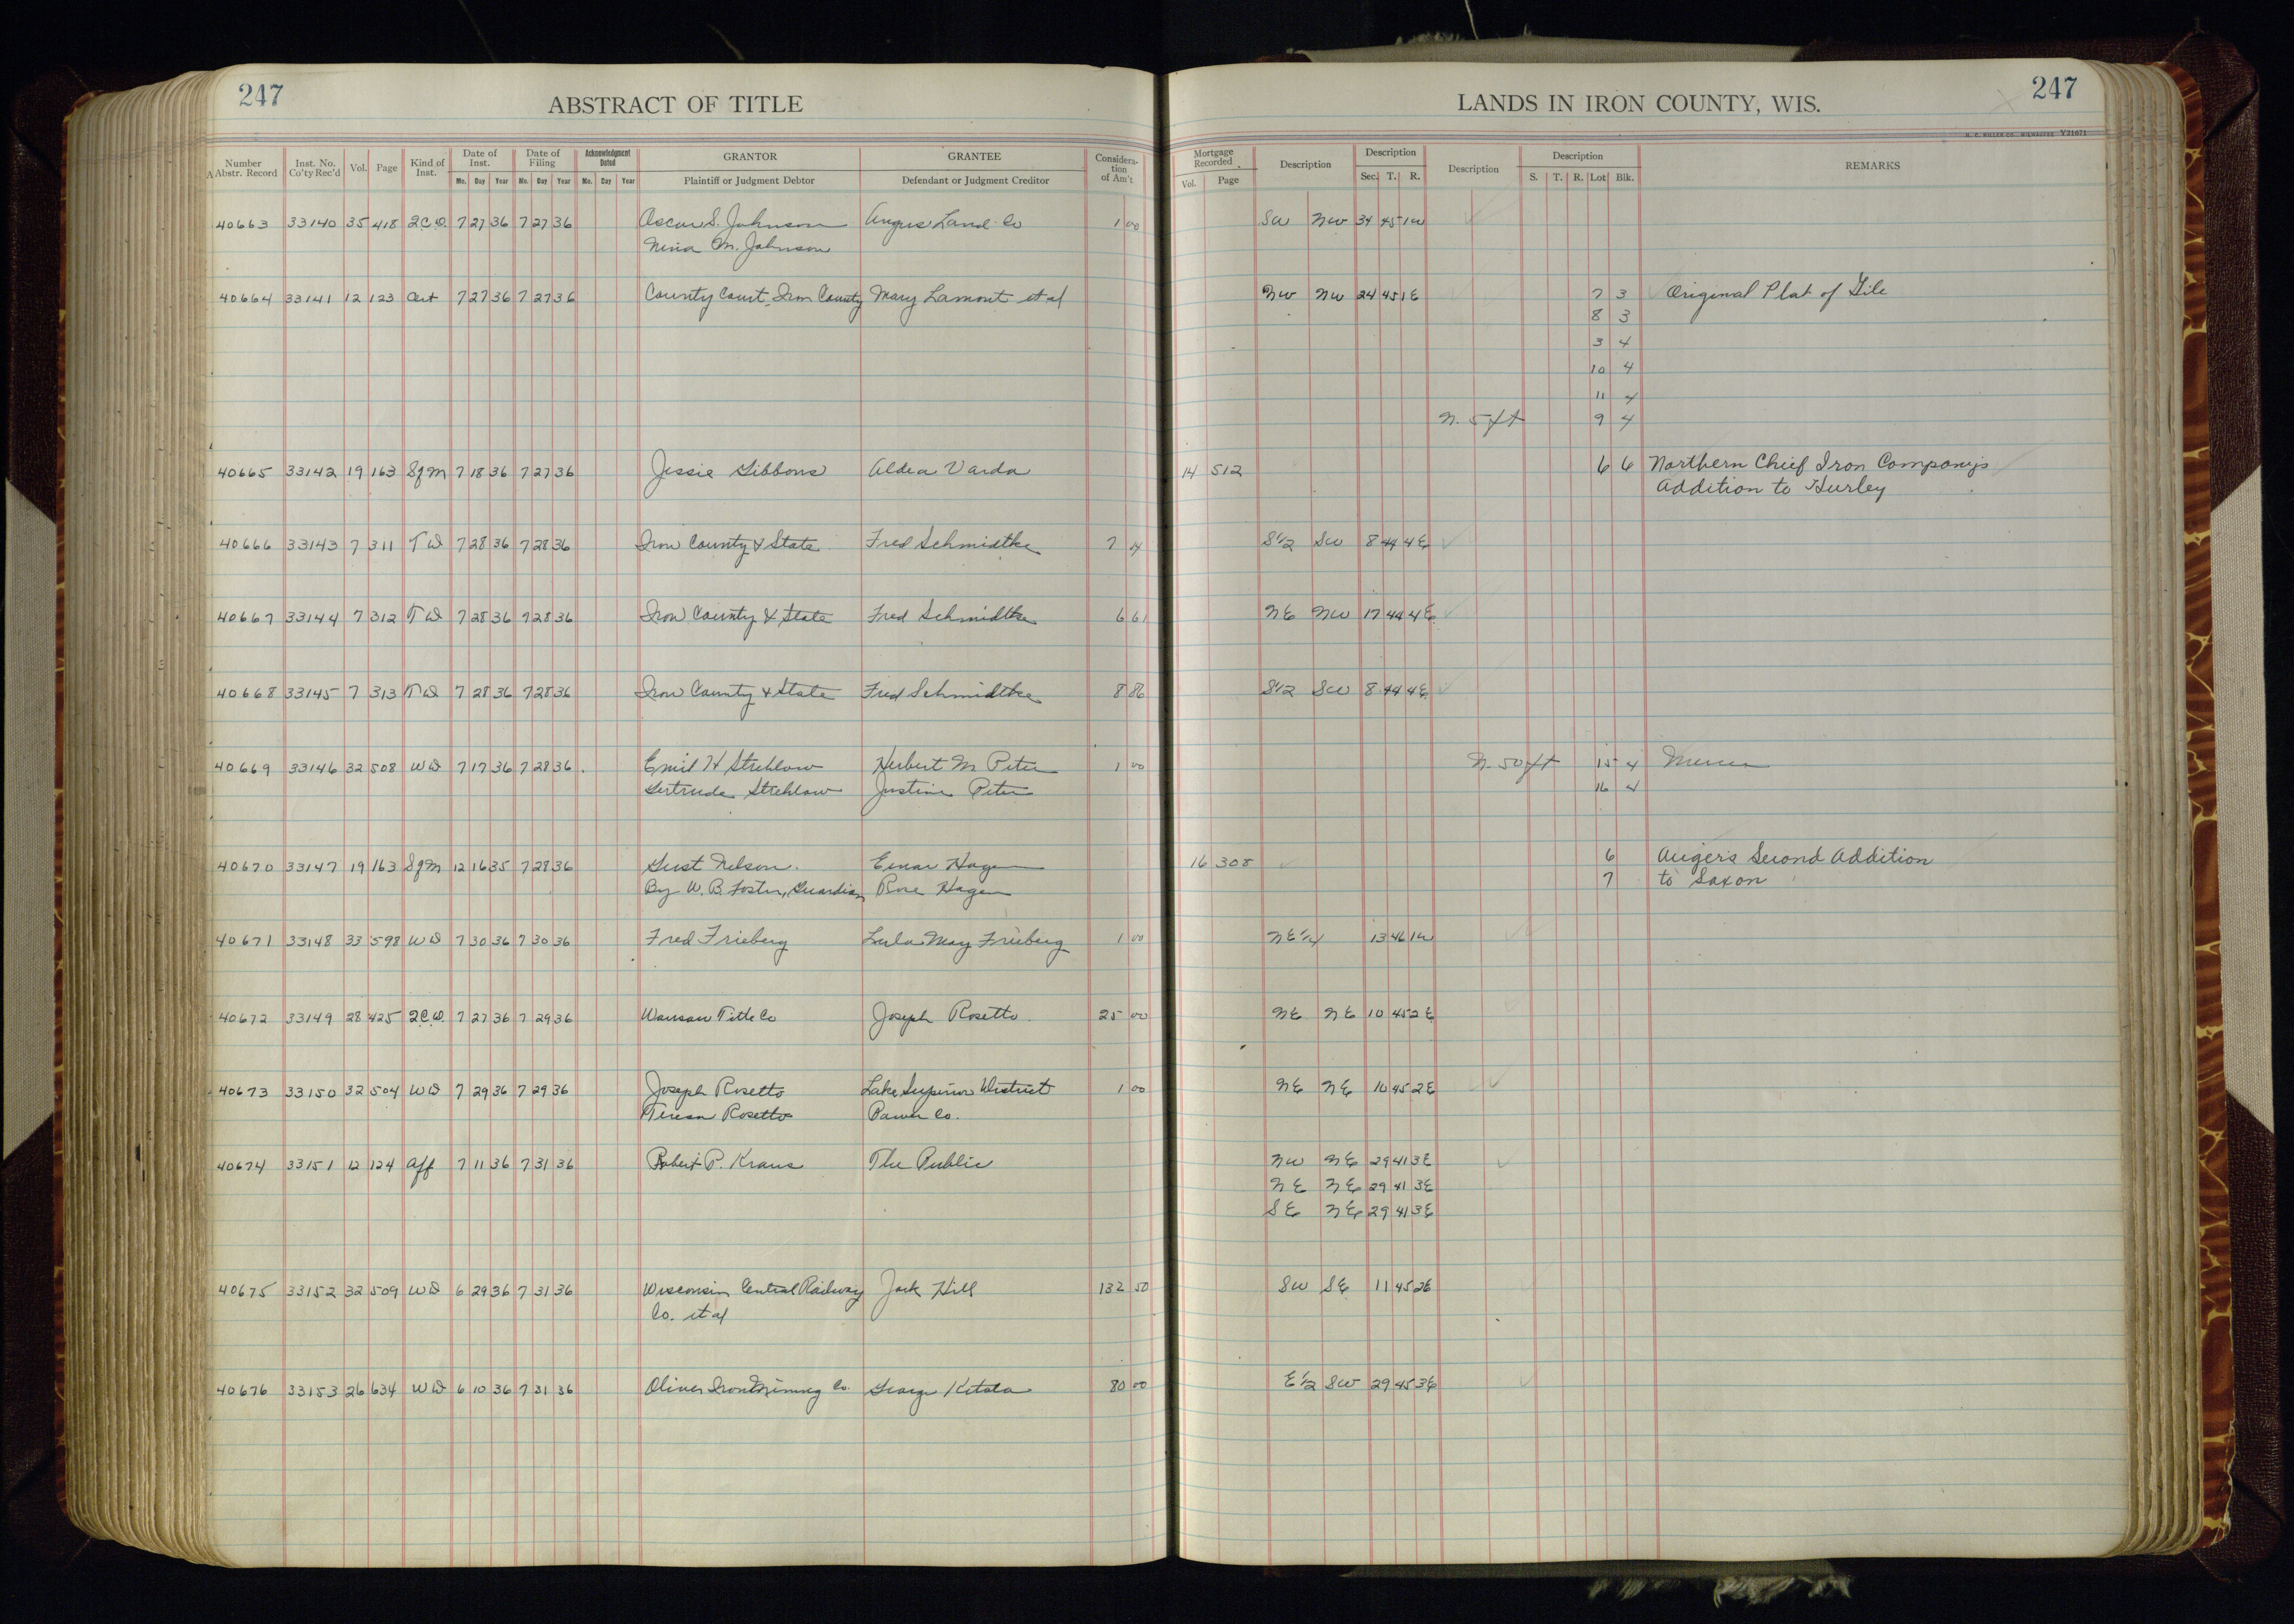 247
ABSTRACT OF TITLE
LANDS IN IRON COUNTY, WIS.
247
H. C. MILLER CO., MILWAUKEE Y21671
Number Abstr. Record | Inst. No. Co'ty Rec'd | Vol. | Page | Kind of Inst. | Date of Inst. Mo. Day Year | Date of Filing Mo. Day Year | Acknowledgment Dated Mo. Day Year | GRANTOR Plaintiff or Judgment Debtor | GRANTEE Defendant or Judgment Creditor | Considera-tion of Am't | Mortgage Recorded Vol. Page | Description | Description Sec. T. R. | Description | Description S. T. R. Lot Blk. | REMARKS
40663 33140 35 418 2C.D. 7 27 36 7 27 36 Oscar S. Johnson Angus Land Co 1 00 SW NW 34 45 1W
Nina M. Johnson
40664 33141 12 123 Cert 7 27 36 7 27 36 County Court, Iron County Mary Lamont et al NW NW 24 45 1E 7 3 Original Plat of Gile
8 3
3 4
10 4
11 4
N. 5 ft 9 4
40665 33142 19 163 SfM 7 18 36 7 27 36 Jessie Gibbons Aldea Varda 14 512 6 6 Northern Chief Iron Company's
Addition to Hurley
40666 33143 7 311 TD 7 28 36 7 28 36 Iron County & State Fred Schmidtke 7 04 S1/2 SW 8 44 4E
40667 33144 7 312 TD 7 28 36 7 28 36 Iron County & State Fred Schmidtke 6 61 NE NW 17 44 4E
40668 33145 7 313 TD 7 28 36 7 28 36 Iron County & State Fred Schmidtke 8 86 S1/2 SW 8 44 4E
40669 33146 32 508 WD 7 17 36 7 28 36 Emil H Strehlow Herbert M Peter 1 00 N. 50 ft 15 4 Mercer
Gertrude Strehlow Justine Peter 16 4
40670 33147 19 163 SfM 12 16 35 7 28 36 Gust Nelson Einar Hagen 16 308 6 Auger's Second Addition
By W. B. Foster, Guardian Rose Hagen 7 to Saxon
40671 33148 33 598 WD 7 30 36 7 30 36 Fred Frieberg Lula May Frieberg 1 00 NE1/4 13 46 1W
40672 33149 28 425 2C.D. 7 27 36 7 29 36 Wausau Title Co Joseph Rosetto 25 00 NE NE 10 45 2E
40673 33150 32 504 WD 7 29 36 7 29 36 Joseph Rosetto Lake Superior District 1 00 NE NE 10 45 2E
Teresa Rosetto Power Co.
40674 33151 12 124 Aff 7 11 36 7 31 36 Robert P. Kraus The Public NW NE 29 41 3E
NE NE 29 41 3E
SE NE 29 41 3E
40675 33152 32 509 WD 6 29 36 7 31 36 Wisconsin Central Railway Jack Hill 132 50 SW SE 11 45 2E
Co. et al
40676 33153 26 634 WD 6 10 36 7 31 36 Oliver Iron Mining Co. George Ketola 80 00 E1/2 SW 29 45 3E